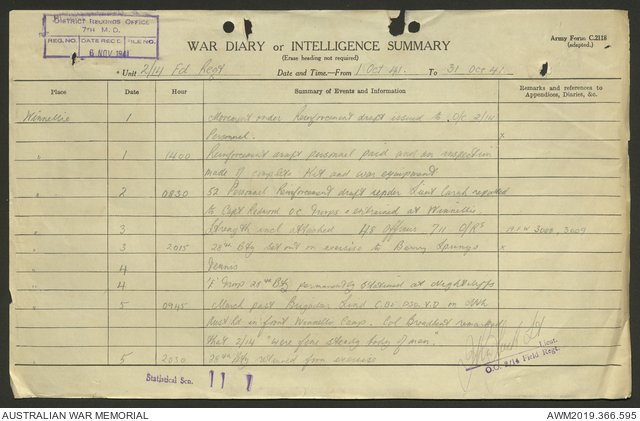 DISTRICT RECORDS OFFICE
7TH M.D.
REG. NO. DATE REC'D. FILE NO.
6 NOV 1941
WAR DIARY or INTELLIGENCE SUMMARY
(Erase heading not required)
Army Form C.2118
(adapted.)
Unit 2/14 Fd Regt Date and Time.—From 1 Oct 41. To 31 Oct 41.
Place Date Hour Summary of Events and Information Remarks and references to
Appendices, Diaries, &c.
Winnellie 1 Movement order Reinforcement draft issued to O/C 2/14
Personnel. x
" 1 1400 Reinforcement draft personnel paid and an inspection
made of complete Kit and war equipment
" 2 0830 52 Personnel Reinforcement draft under Lieut reported
to Capt O.C. Troops & entrained at Winnellie.
" 3 Strength incl attached 48 Officers 711 O/Rs
" 3 2015 28th Bty set out on exercise to Berry Springs x
" 4 Tennis
" 4 'F' Troop 28th Bty permanently stationed at Nightcliffe
" 5 0945 March past Brigadier Lind C.B.E. D.S.O. V.D. on
in front Winnellie Camp. Col Broadbent remarked
that 2/14 "were fine steady body of men"
" 5 2030 28th Bty returned from exercise
Lieut.
O.C. 2/14 Field Regt.
Statistical Sen. 11 7
AUSTRALIAN WAR MEMORIAL AWM2019.366.595